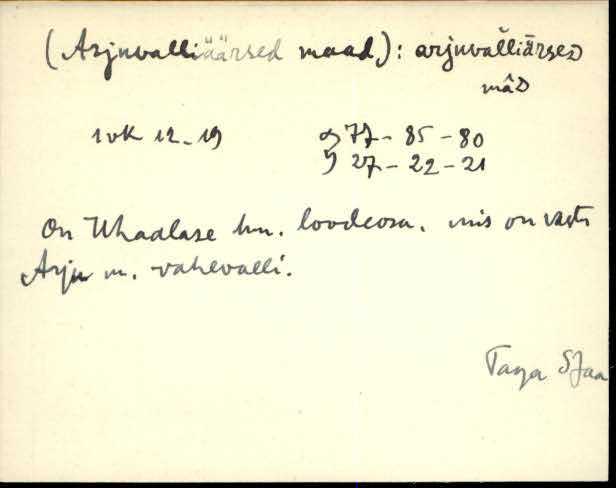 (Arjuvalliäärsed maad,): arjuvàlliärseᴅ
mâᴅ
1vk 12-19 x) 77-85-80
y) 27-22-21
On Uhaalase hn. loodeosa, mis on vastu
Arju m. vahevalli.
Taga SJaa